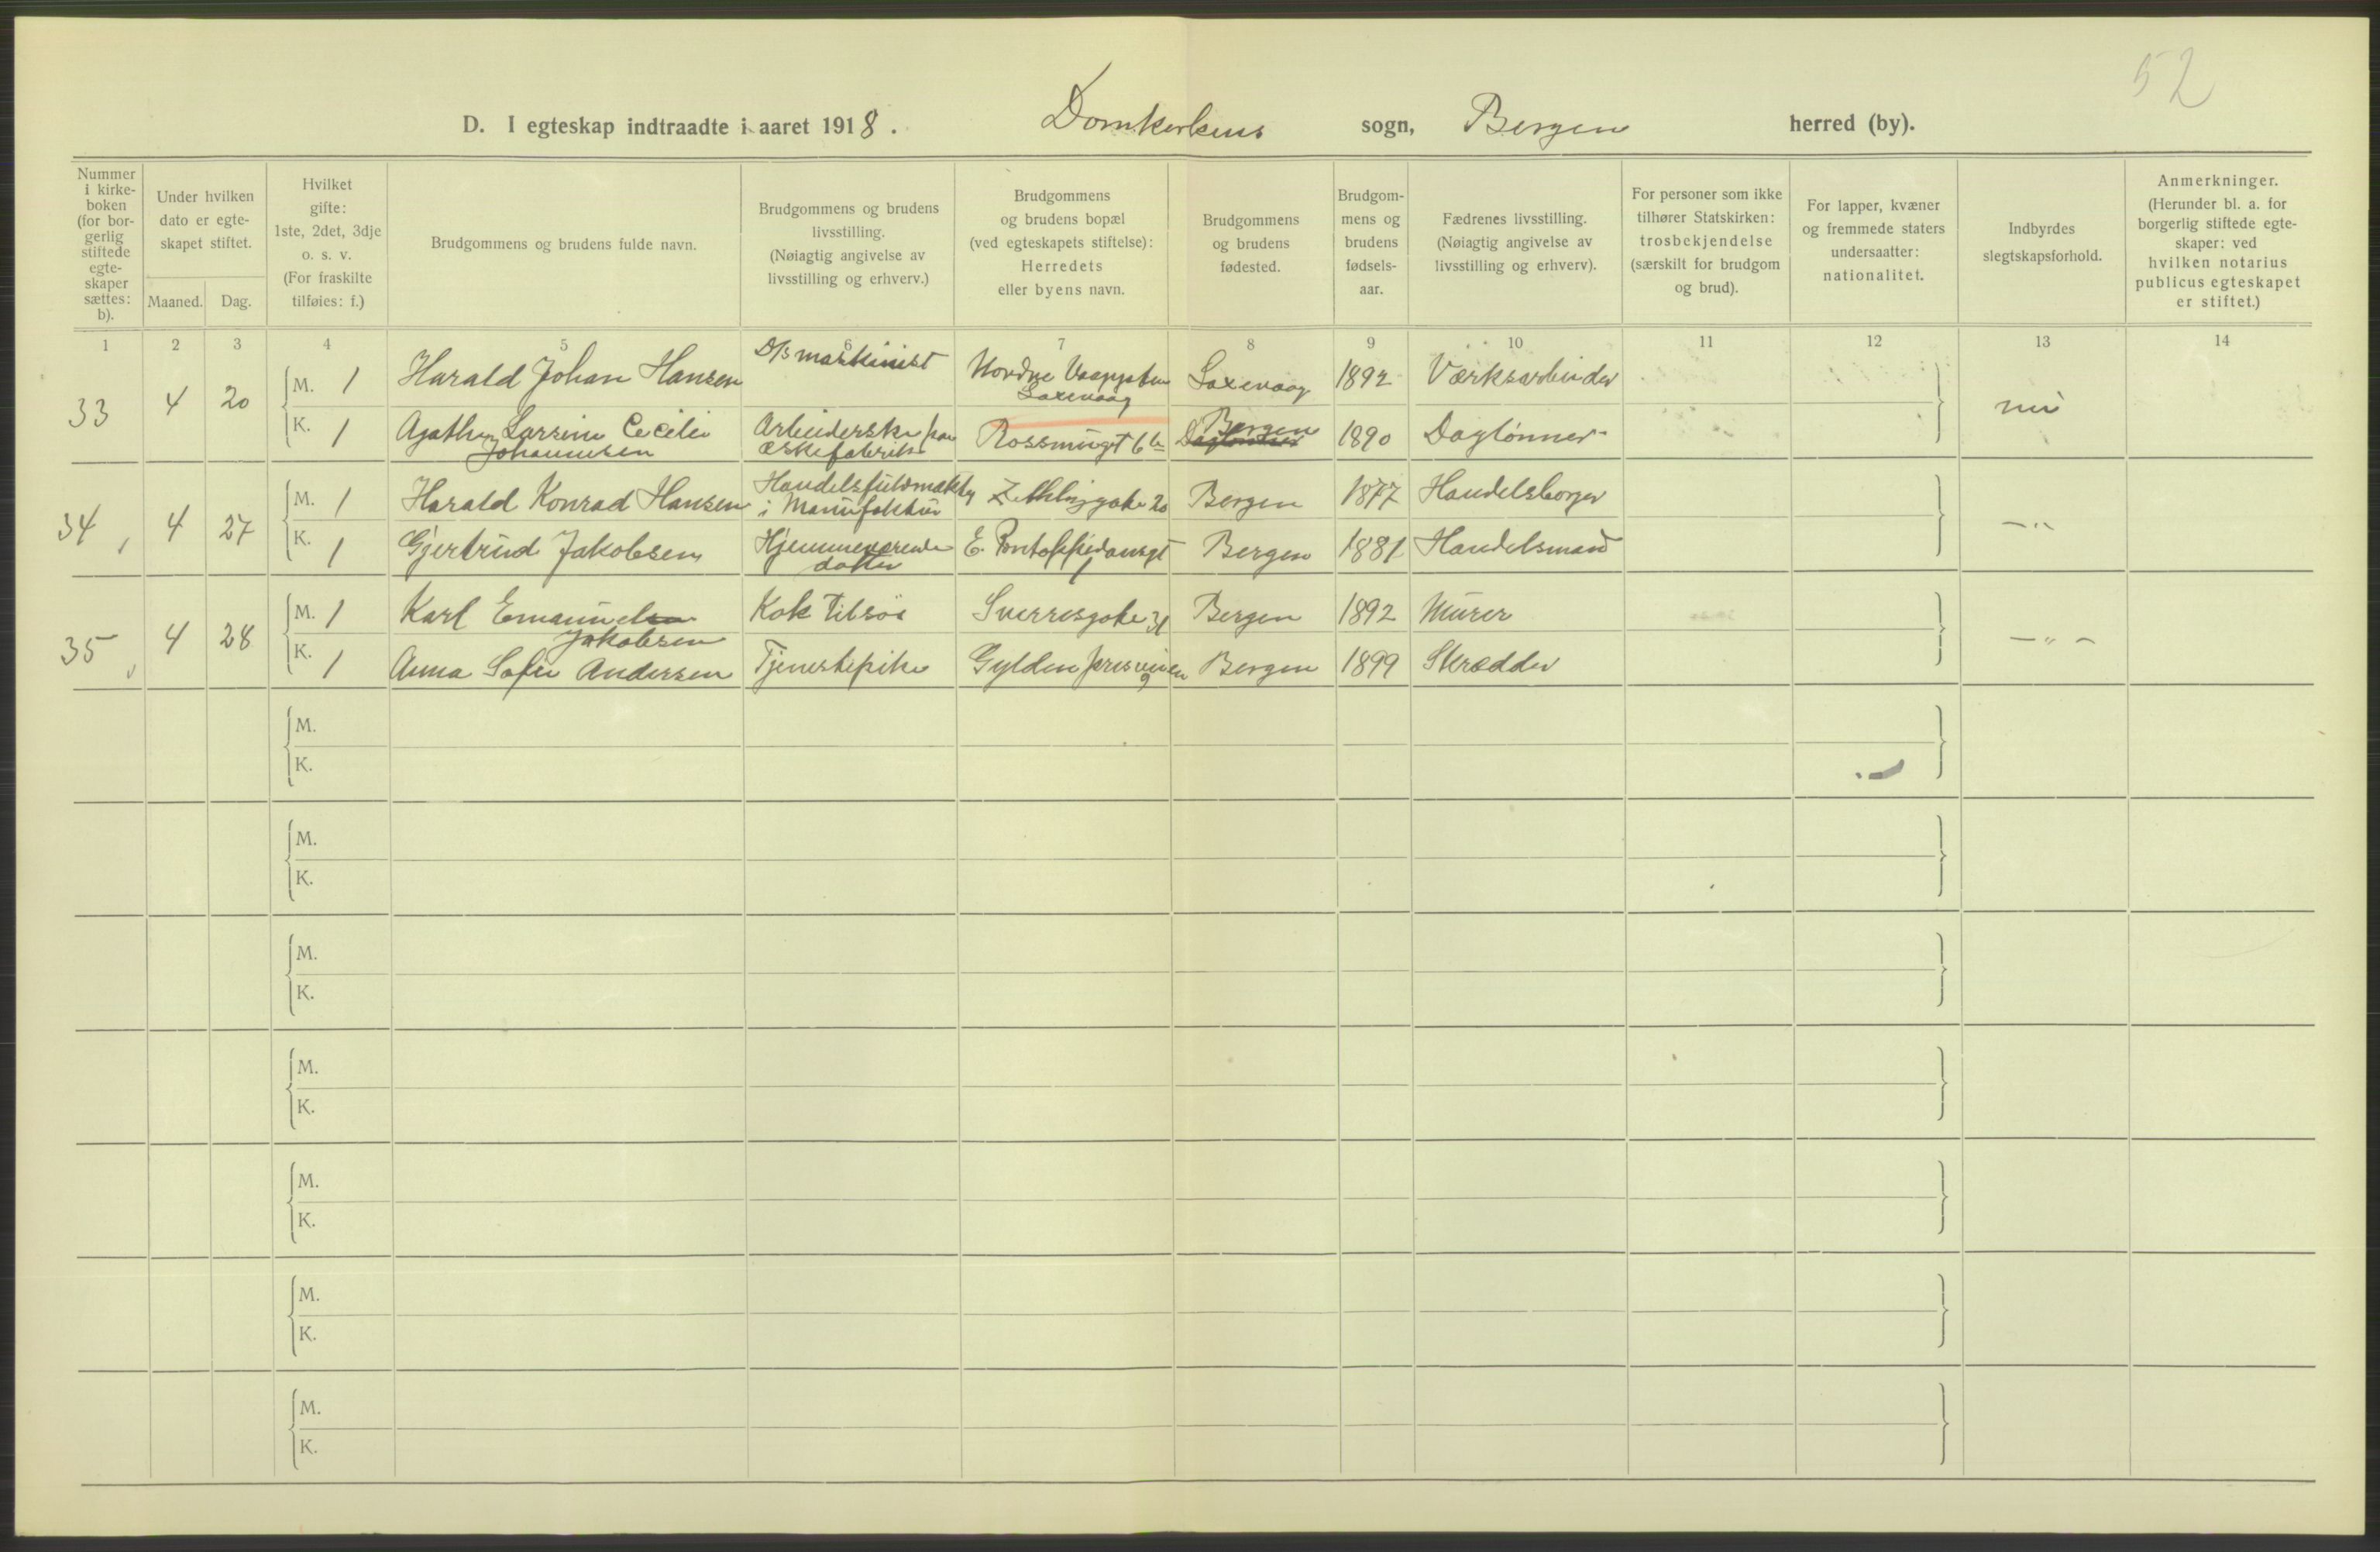 52
D. I egteskap indtraadte i aaret 1918. Domkirkens sogn, Bergen herred (by).
Nummer i kirke-boken (for bor-gerlig stiftede egte-skaper sættes: b).
Under hvilken dato er egte-skapet stiftet.
Maaned. Dag.
Hvilket gifte: 1ste, 2det, 3dje o. s. v. (For fraskilte tilføies: f.)
Brudgommens og brudens fulde navn.
Brudgommens og brudens livsstilling. (Nøiagtig angivelse av livsstilling og erhverv.)
Brudgommens og brudens bopæl (ved egteskapets stiftelse): Herredets eller byens navn.
Brudgommens og brudens fødested.
Brudgom-mens og brudens fødsels-aar.
Fædrenes livsstilling. (Nøiagtig angivelse av livsstilling og erhverv).
For personer som ikke tilhører Statskirken: trosbekjendelse (særskilt for brudgom og brud).
For lapper, kvæner og fremmede staters undersaatter: nationalitet.
Indbyrdes slegtskapsforhold.
Anmerkninger. (Herunder bl. a. for borgerlig stiftede egte-skaper: ved hvilken notarius publicus egteskapet er stiftet.)
1 2 3 4 5 6 7 8 9 10 11 12 13 14
33 4 20 M. 1 Harald Johan Hansen D/s maskinist Nordre Laxevaag Laxevaag 1892 Værksarbeider nei
K. 1 Agathe Larsine Cecilie Johannesen Arbeiderske paa Eskefabrik Rossmugt 6b Bergen 1890 Daglønner
34 4 27 M. 1 Harald Konrad Hansen Handelsfuldmæktig i Manufaktur Zetlitzgate 20 Bergen 1877 Handelsborger —"—
K. 1 Gjertrud Jakobsen Hjemmeværende datter E. Pontoppidansgt 1 Bergen 1881 Handelsmand
35 4 28 M. 1 Karl Emanuel Jakobsen Kok tilsøs Sverresgate 31 Bergen 1892 Murer —"—
K. 1 Anna Sofie Andersen Tjenestepike Gyldenprisveien 9 Bergen 1899 Skrædder
M.
K.
M.
K.
M.
K.
M.
K.
M.
K.
M.
K.
M.
K.